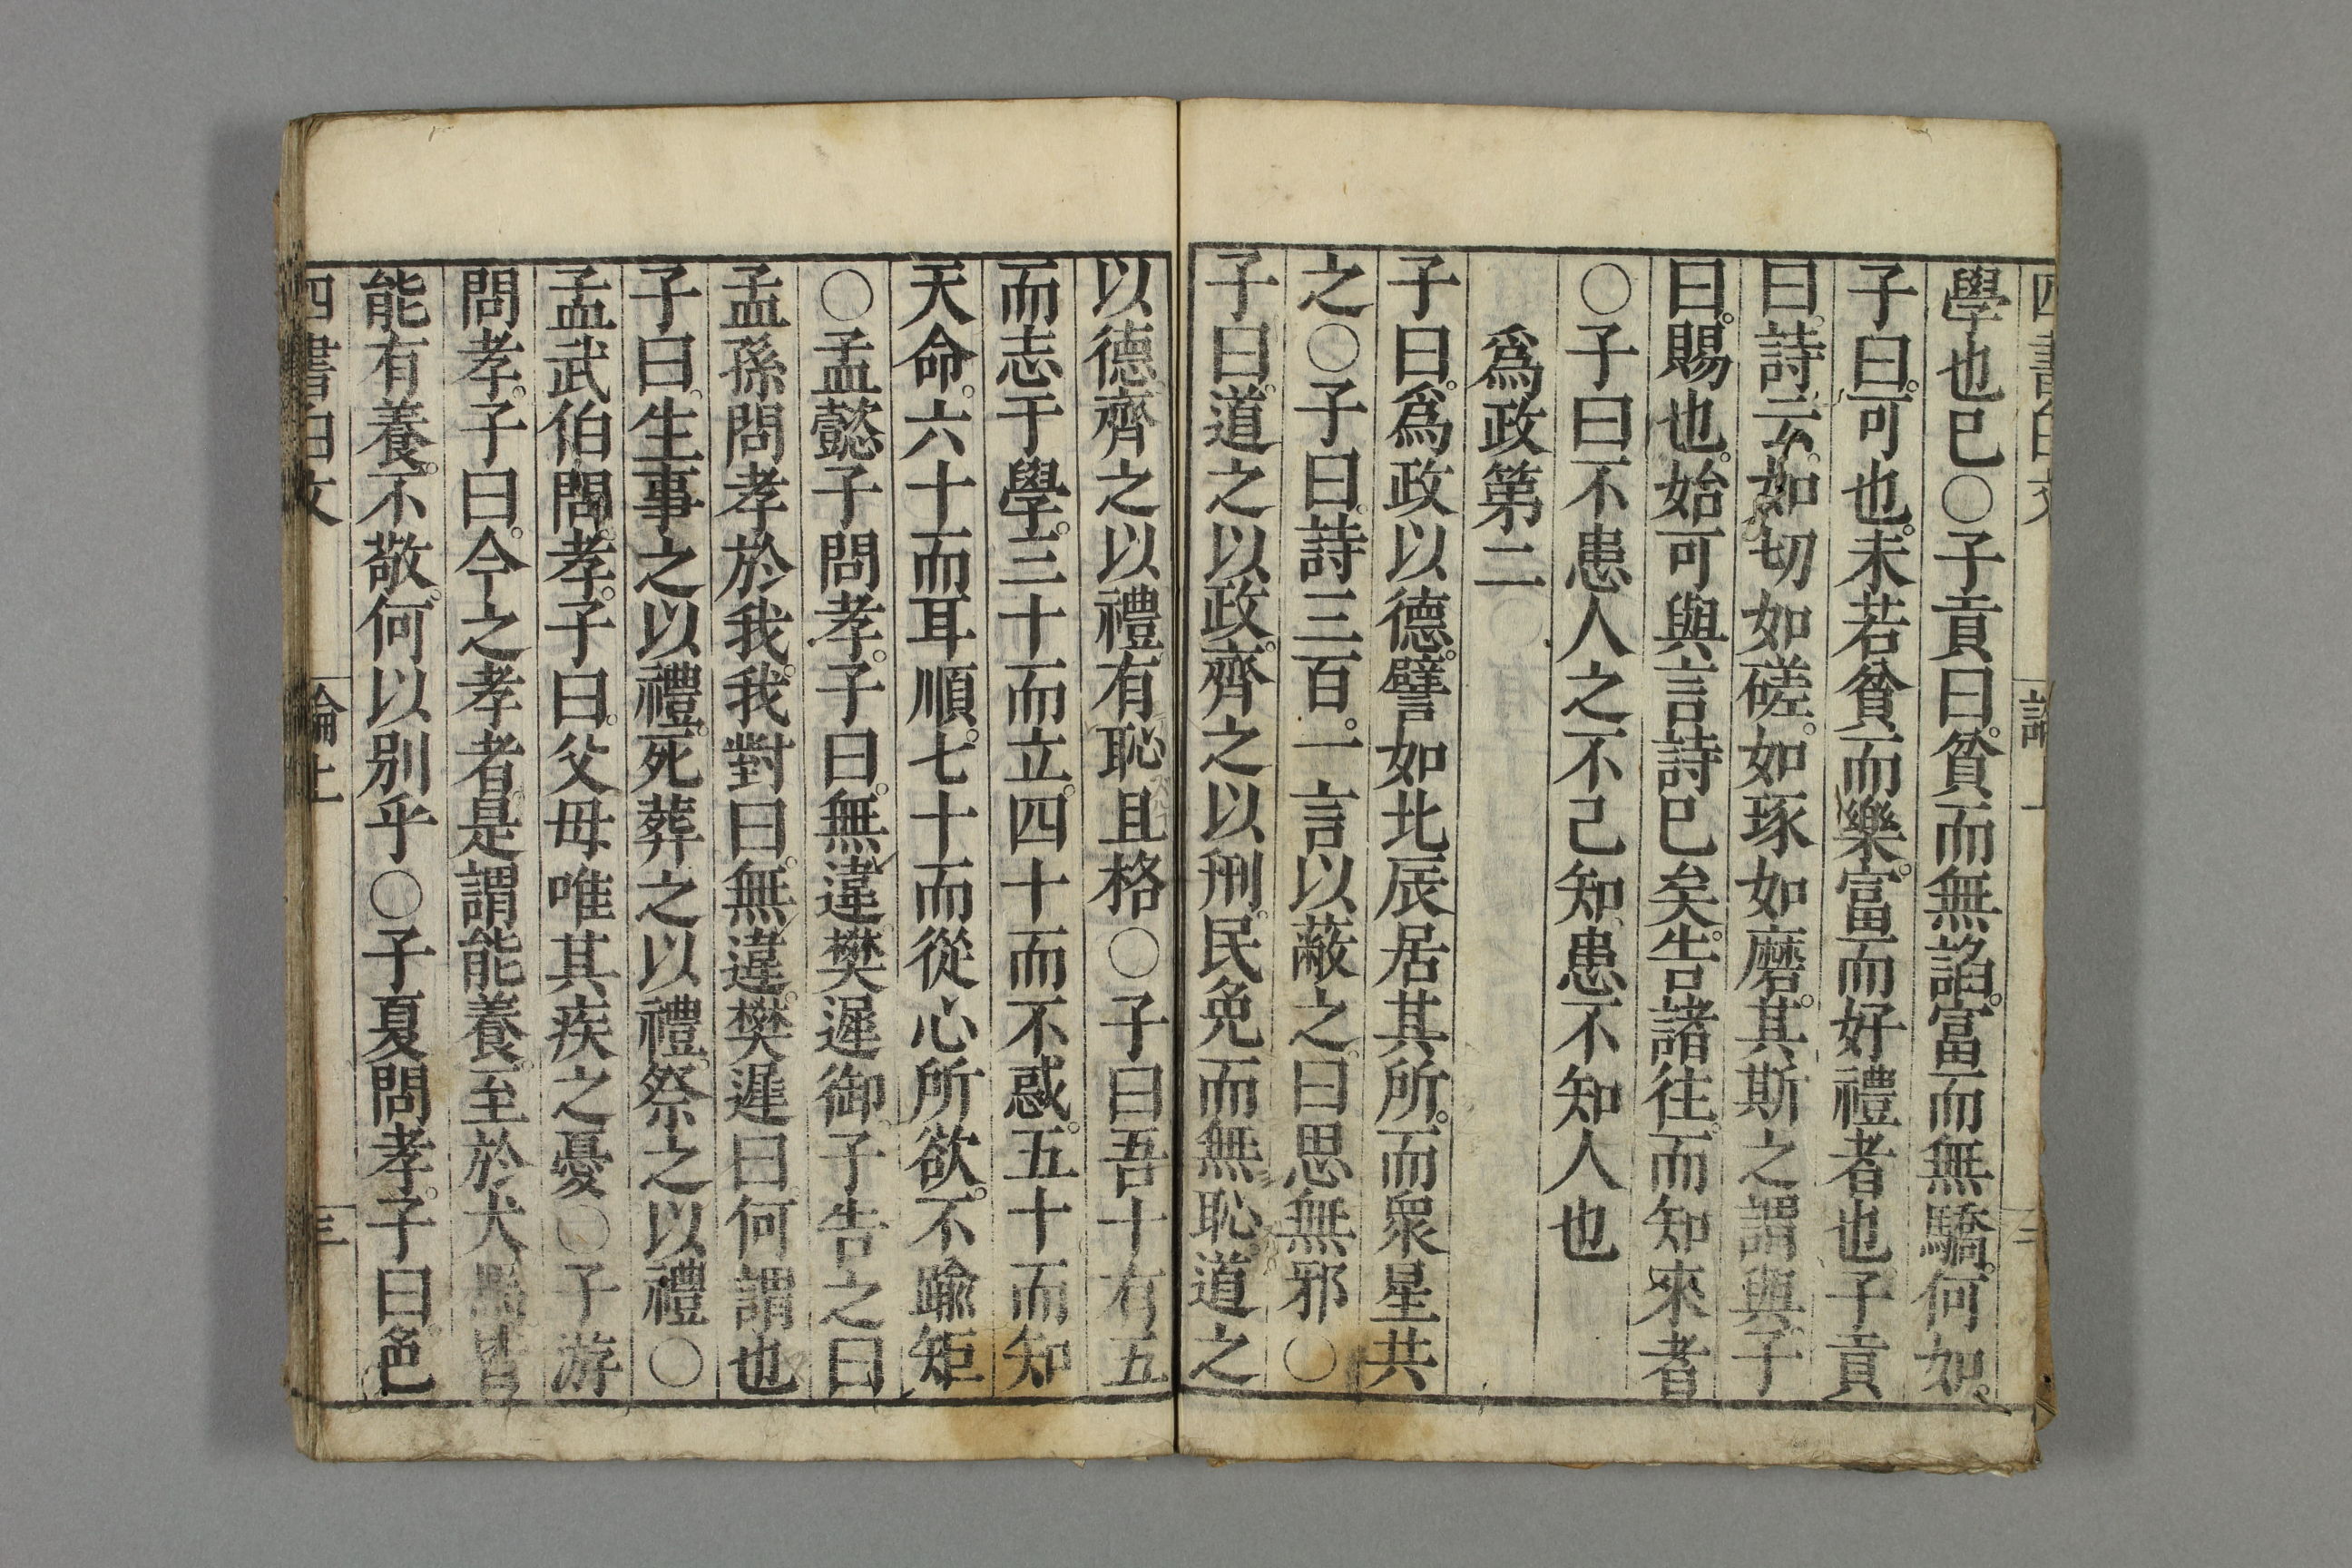 學也已○子貢曰。貧而無諂。富而無驕。何如。
子曰。可也。未若貧而樂。富而好禮者也。子貢
曰。詩云。如切如磋。如琢如磨。其斯之謂與。子
曰。賜也。始可與言詩已矣。告諸往。而知來者
○子曰不患人之不己知、患不知人也
爲政第二
子曰。爲政以德。譬如北辰居其所。而衆星共
之○子曰。詩三百。一言以蔽之。曰思無邪○
子曰。道之以政。齊之以刑。民免而無恥。道之
以德齊之以禮有恥且格○子曰吾十有五
而志于學。三十而立。四十而不惑。五十而知
天命。六十而耳順。七十而從心所欲。不踰矩
○孟懿子問孝。子曰。無違樊遲御子告之曰
孟孫問孝於我。我對曰。無違。樊遲曰。何謂也
子曰。生事之以禮。死葬之以禮。祭之以禮○
孟武伯問孝。子曰。父母唯其疾之憂○子游
問孝。子曰。今之孝者。是謂能養。至於犬馬皆
能有養。不敬。何以別乎○子夏問孝。子曰。色
四書白文 論上 三